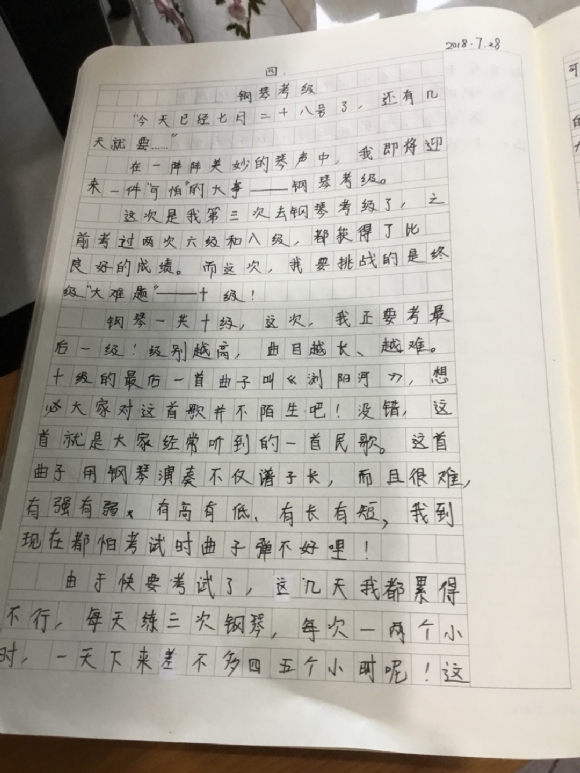 2018.7.28
四.
钢琴考级
“今天已经七月二十八号了，还有几
天就要……”
在一阵阵美妙的琴声中，我即将迎
来一件“可怕”的大事——钢琴考级。
这次是我第三次去钢琴考级了，之
前考过两次六级和八级，都获得了比
良好的成绩。而这次，我要挑战的是终
级“大难题”——十级！
钢琴一共十级，这次，我正要考最
后一级！级别越高，曲目越长、越难。
十级的最后一首曲子叫《浏阳河》，想
必大家对这首歌并不陌生吧！没错，这
首就是大家经常听到的一首民歌。这首
曲子用钢琴演奏不仅谱子长，而且很难，
有强有弱、有高有低、有长有短，我到
现在都怕考试时曲子弹不好哩！
由于快要考试了，这几天我都累得
不行，每天练三次钢琴，每次一两个小
时，一天下来差不多四五个小时呢！这